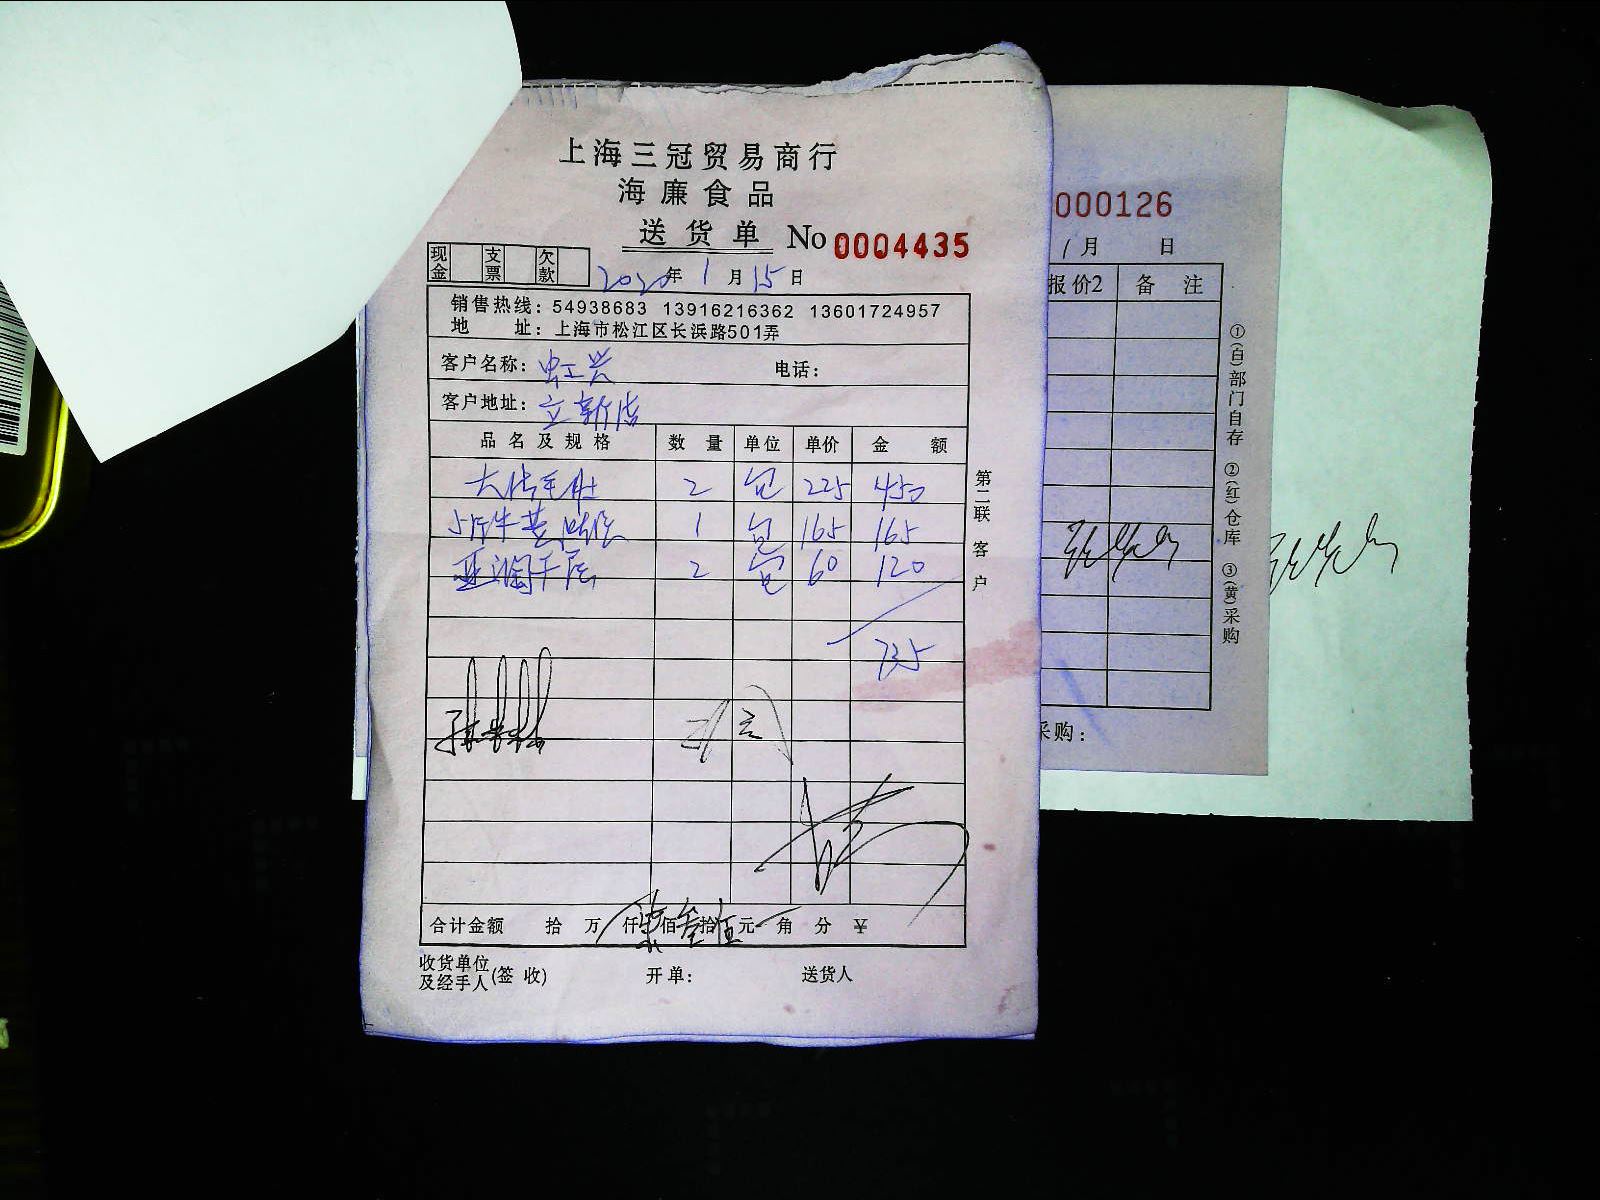 上海三冠贸易商行
海廉食品
送货单 No 0004435
现金 支票 欠款 2020年1月15日
销售热线：54938683 13916216362 13601724957
地 址：上海市松江区长浜路501弄
客户名称：虹兴 电话：
客户地址：立新店
品名及规格 数量 单位 单价 金额
大 毛肚 2 包 225 450
牛 1 包 165 165
千层 2 包 60 120
735
合计金额 拾 万 仟 柒 佰 叁 拾 伍 元 角 分 ¥
收货单位及经手人(签收) 开单： 送货人
第二联 客户
000126
1月 日
报价2 备注
①(白)部门自存 ②(红)仓库 ③(黄)采购
采购：